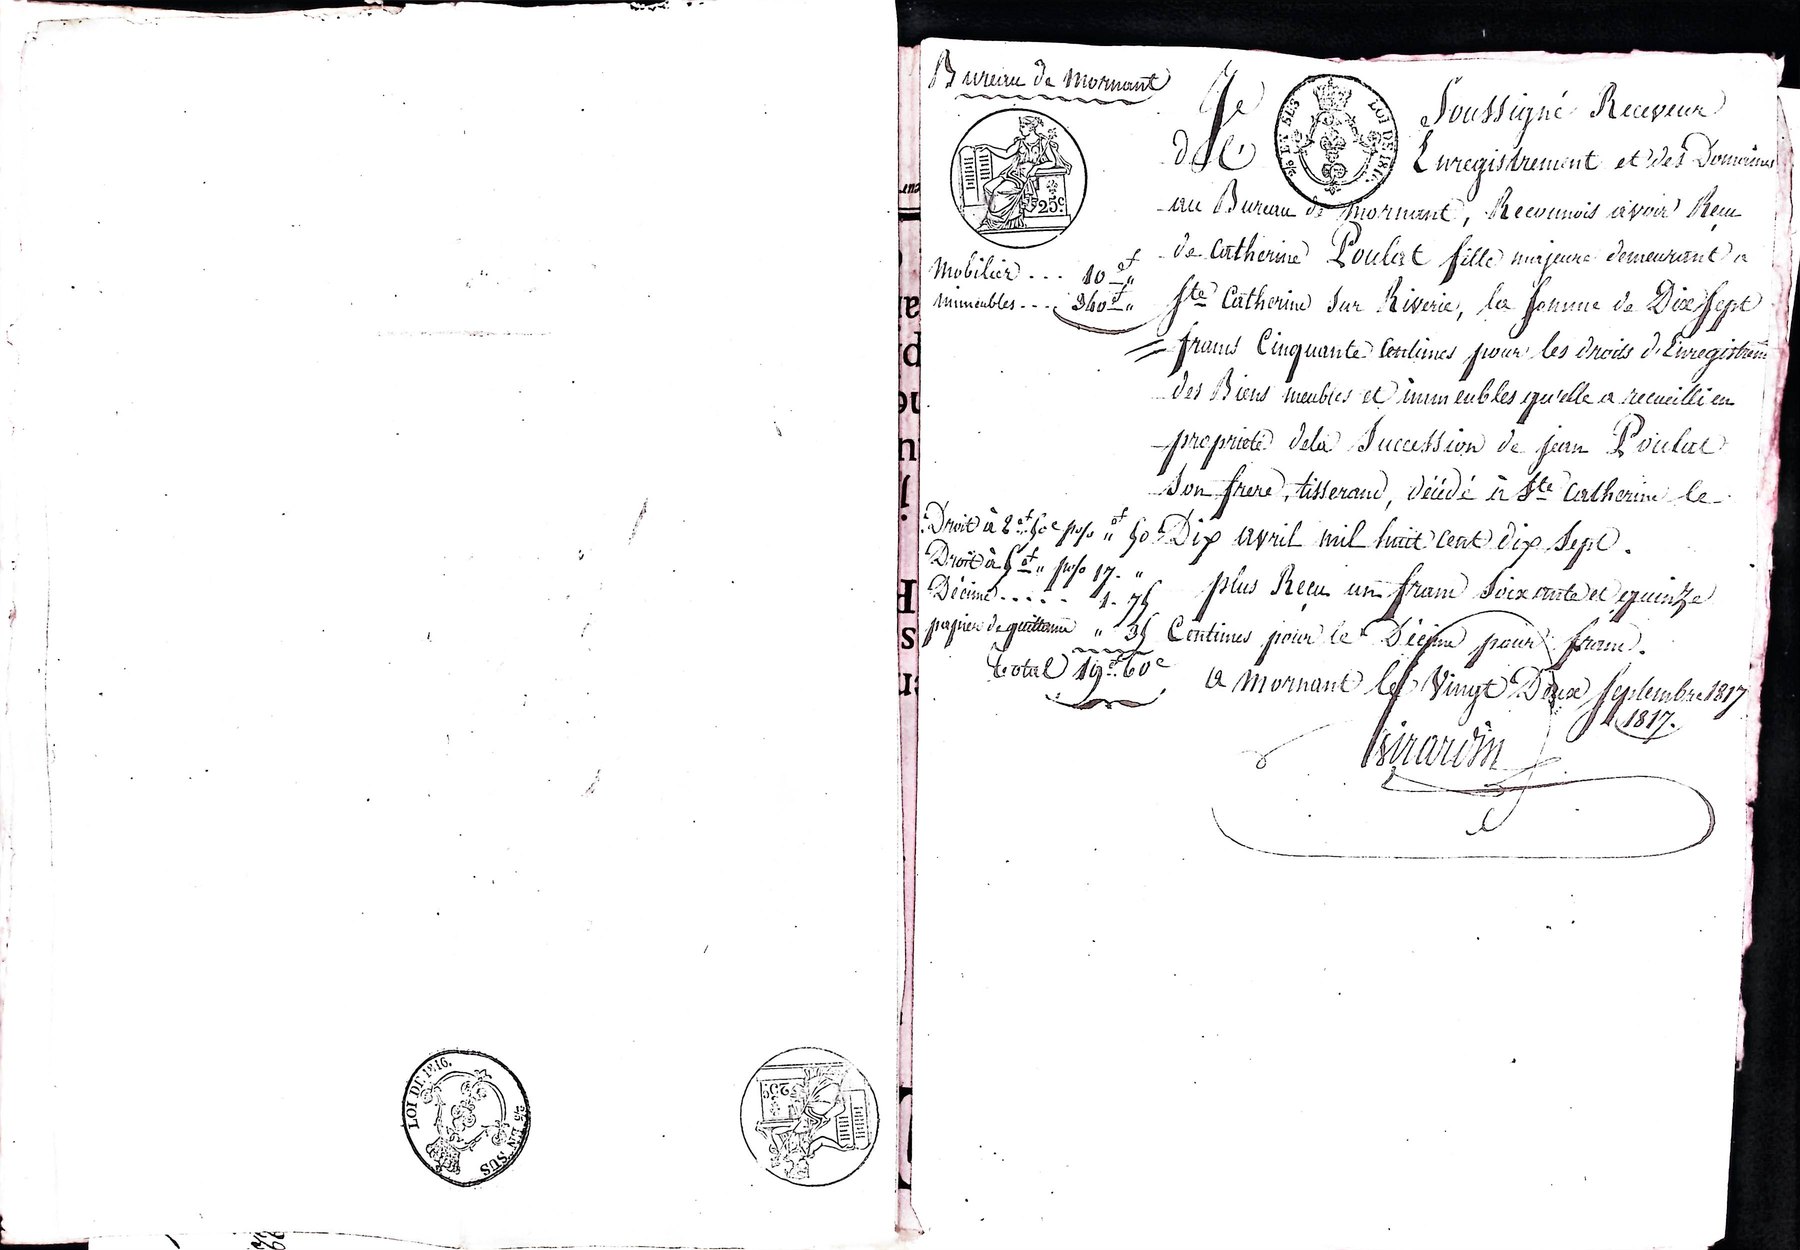 Bureau de Mornant
Je Soussigné Receveur
de l' Enregistrement et des Domaines
au Bureau de Mornant, Reconnois avoir Reçu
de Catherine Poulat fille majeure demeurant a
Ste Catherine Sur Riverie, la Somme de Dix Sept
francs Cinquante Centimes pour les droits d'Enregistremt
des Biens meubles et immeubles qu'elle a recueilli en
propriété dela Succession de jean Poulat
Son frere, tisserand, décédé à Ste Catherine le
Dix avril mil huit cent dix Sept.
plus Reçu un franc Soixante et quinze
Centimes pour le Décime pour franc.
a Mornant le Vingt Deux Septembre 1817
1817.
Girardin
25c
ET SES
LOI DE 1816.
Mobilier ... 10 f "
immeubles ... 340 f "
Droit à 2 f 50 c p% " f 50
Droit à 5 f " p% 17 . "
Décime ..... 1 . 75
papier de quittance " 35
Total 19 f 60 c
LOI DE 1816.
EN SUS
25c